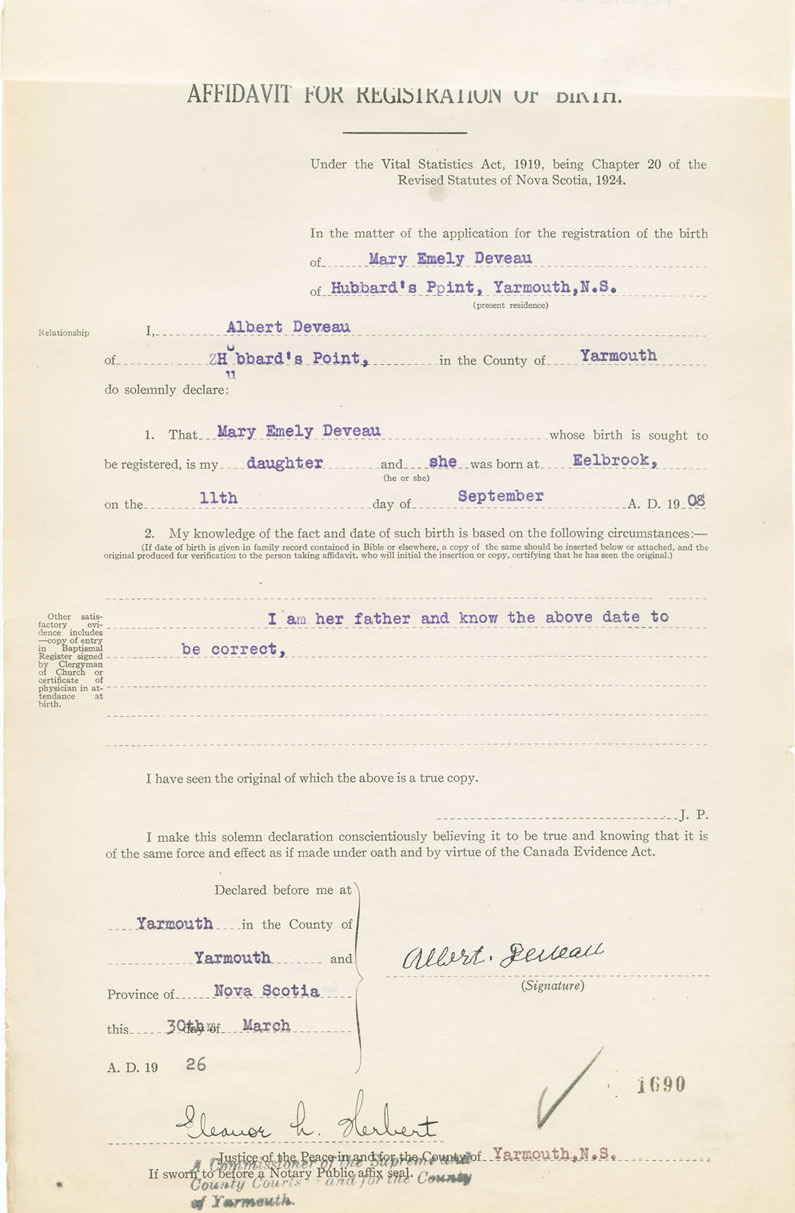 AFFIDAVIT FOR REGISTRATION OF BIRTH.
Under the Vital Statistics Act, 1919, being Chapter 20 of the
Revised Statutes of Nova Scotia, 1924.
In the matter of the application for the registration of the birth
of Mary Emely Deveau
of Hubbard's Ppint, Yarmouth,N.S.
(present residence)
Relationship
I, Albert Deveau
of ZHubbard's Point, in the County of Yarmouth
do solemnly declare:
1. That Mary Emely Deveau whose birth is sought to
be registered, is my daughter and she was born at Eelbrook,
(he or she)
on the 11th day of September A. D. 19 08
2. My knowledge of the fact and date of such birth is based on the following circumstances:—
(If date of birth is given in family record contained in Bible or elsewhere, a copy of the same should be inserted below or attached, and the
original produced for verification to the person taking affidavit, who will initial the insertion or copy, certifying that he has seen the original.)
Other satis-
factory evi-
dence includes
—copy of entry
in Baptismal
Register signed
by Clergyman
of Church or
certificate of
physician in at-
tendance at
birth.
I am her father and know the above date to
be correct,
I have seen the original of which the above is a true copy.
J. P.
I make this solemn declaration conscientiously believing it to be true and knowing that it is
of the same force and effect as if made under oath and by virtue of the Canada Evidence Act.
Declared before me at
Yarmouth in the County of
Yarmouth and
Province of Nova Scotia
this 30th day of March
A. D. 19 26
Albert. Deveau
(Signature)
1690
Eleanor L. Herbert
Justice of the Peace in and for the County of Yarmouth,N.S.
If sworn to before a Notary Public affix seal.
A Commissioner of the Supreme and
County Courts and for the County
of Yarmouth.